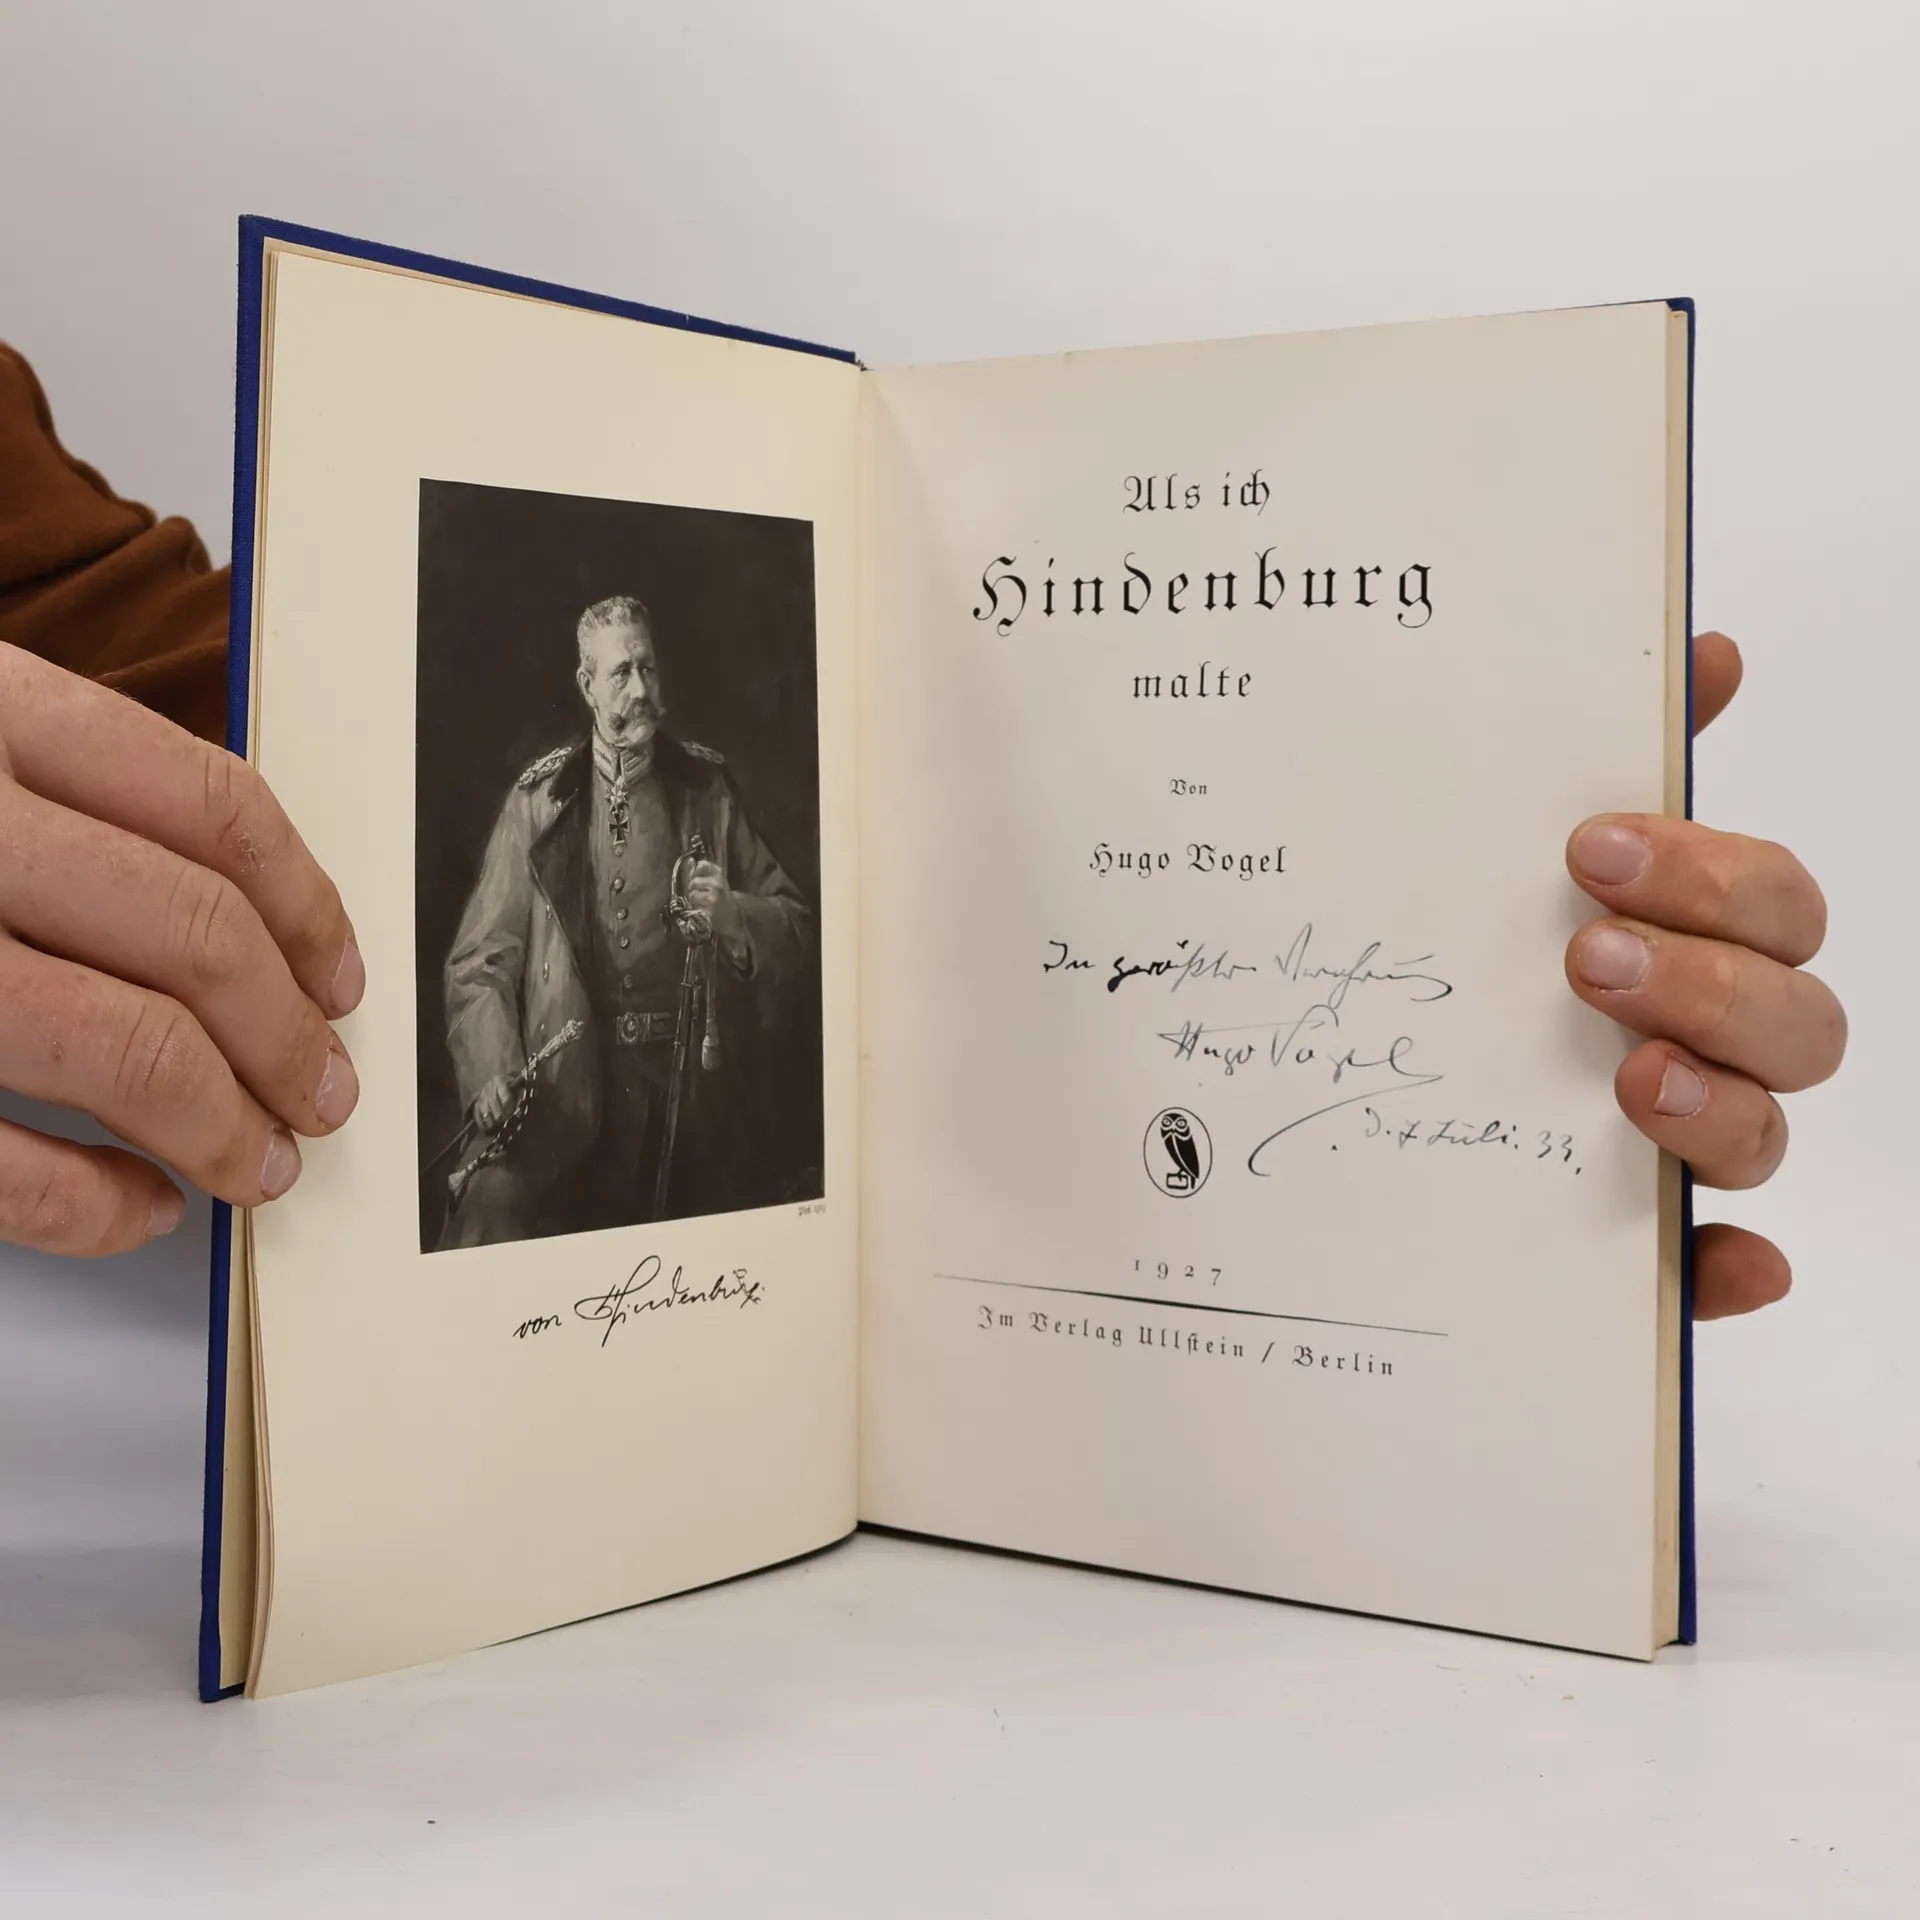 von Hindenburg.
Als ich
Hindenburg
malte
Von
Hugo Vogel
In größter Verehrung
Hugo Vogel
d. 7 Juli. 33.
1927
Im Verlag Ullstein / Berlin